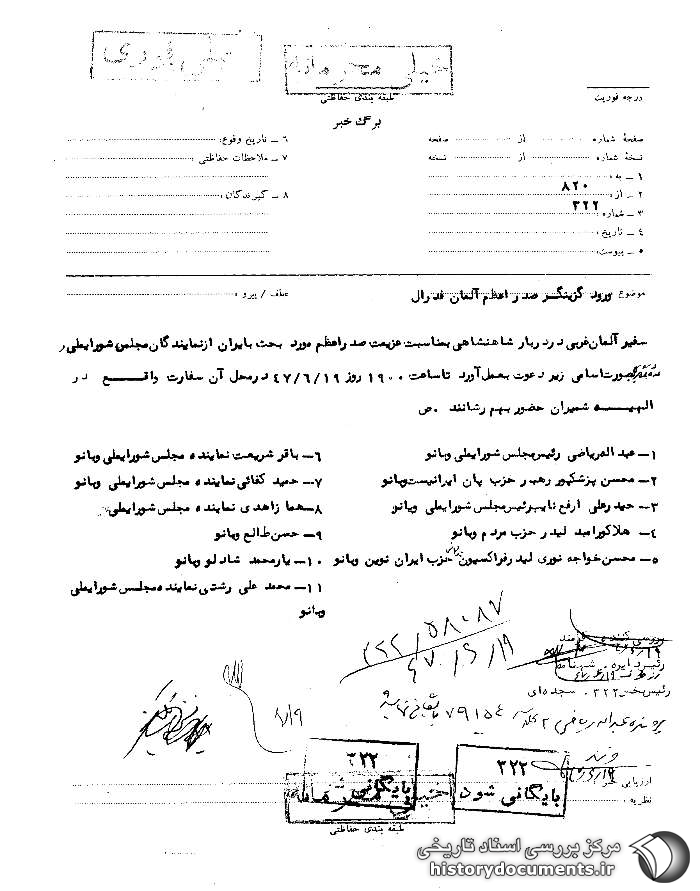 خیلی فوری
خیلی محرمانه
طبقه بندی حفاظتی
درجه فوریت
برگ خبر
صفحهٔ شماره از صفحه
نسخهٔ شماره از نسخه
۱ - به :
۲ - از : ۸۲۰
۳ - شماره ۳۲۲
۴ - تاریخ :
۵ - پیوست
۶ - تاریخ وقوع :
۷ - ملاحظات حفاظتی :
۸ - گیرندگان :
موضوع ورود گزینگر صدراعظم آلمان فدرال
عطف / پیرو :
سفیر آلمان غربی در دربار شاهنشاهی بمناسبت عزیمت صدراعظم مورد بحث بایران از نمایندگان مجلس شورایملی و
بصورت اسامی زیر دعوت بعمل آورد تا ساعت ۱۹۰۰ روز ۴۷/۶/۱۹ در محل آن سفارت واقع در
الهیه شمیران حضور بهم رسانند . ص
۱- عبدالله ریاضی رئیس مجلس شورایملی وبانو
۲- محسن پزشکپور رهبر حزب پان ایرانیست وبانو
۳- حیدرعلی ارفع نایب رئیس مجلس شورایملی وبانو
۴- هلاکو رامبد لیدر حزب مردم وبانو
۵- محسن خواجه نوری لیدر فراکسیون حزب ایران نوین وبانو
۶- باقر شریعت نماینده مجلس شورایملی وبانو
۷- حمید کفائی نماینده مجلس شورایملی وبانو
۸- هما زاهدی نماینده مجلس شورایملی
۹- حسن طالع وبانو
۱۰- یارمحمد شادلو وبانو
۱۱- محمد علی رشتی نماینده مجلس شورایملی
وبانو
۳۲۲/۵۸۰۸۷
۴۷/۶/۱۹
رئیس بخش ۳۲۲ . سجده ای
پرونده عبدالله ریاضی ۷۹۱۵۴ بایگانی
۷/۹
۳۲۲
بایگانی شود
۳۲۲
بایگانی
ارزیابی خبر
نظریه :
طبقه بندی حفاظتی
مرکز بررسی اسناد تاریخی
historydocuments.ir